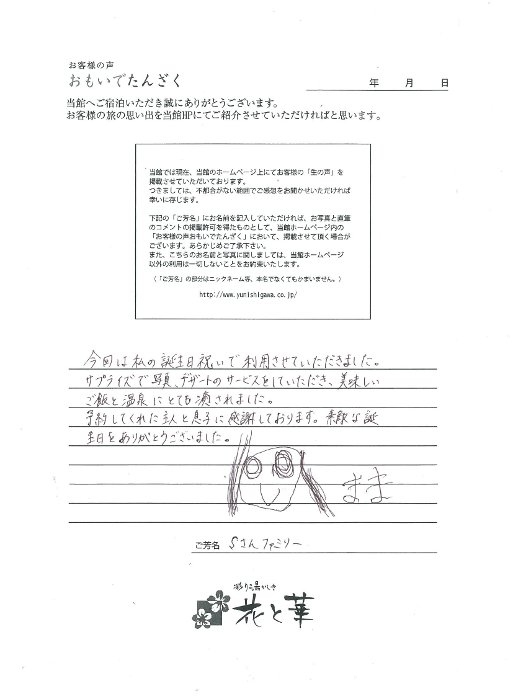 お客様の声
おもいでたんざく
年 月 日
当館へご宿泊いただき誠にありがとうございます。
お客様の旅の思い出を当館HPにてご紹介させていただければと思います。
当館では現在、当館のホームページ上にてお客様の「生の声」を
掲載させていただいております。
つきましては、不都合がない範囲でご感想をお聞かせいただければ
幸いに存じます。
下記の「ご芳名」にお名前を記入していただければ、お写真と直筆
のコメントの掲載許可を得たものとして、当館ホームページ内の
「お客様の声おもいでたんざく」において、掲載させて頂く場合が
ございます。あらかじめご了承下さい。
また、こちらのお名前と写真に関しましては、当館ホームページ
以外の利用は一切しないことをお約束いたします。
（「ご芳名」の部分はニックネーム等、本名でなくてもかまいません。）
http://www.yunishigawa.co.jp/
今回は私の誕生日祝いで利用させていただきました。
サプライズで写真、デザートのサービスをしていただき、美味しい
ご飯と温泉にとても癒されました。
予約してくれた主人と息子に感謝しております。素敵な誕
生日をありがとうございました。
まま
ご芳名 Sさんファミリー
彩り湯かしき
花と華